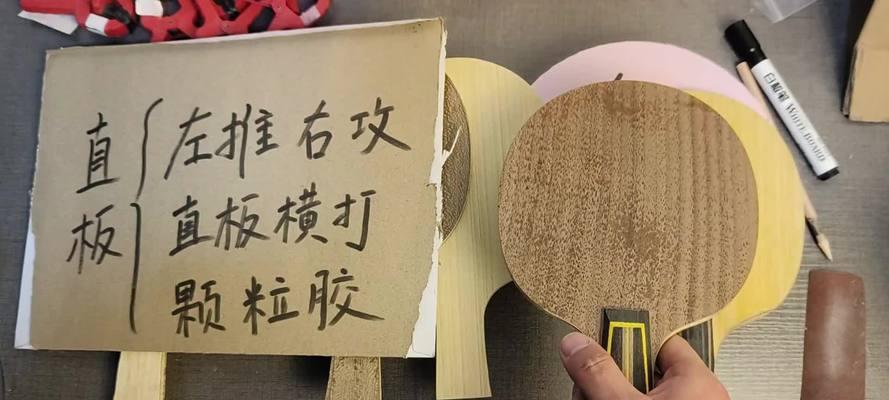 直板
左推右攻
直板横打
颗粒胶
白板笔 WHITE BOARD